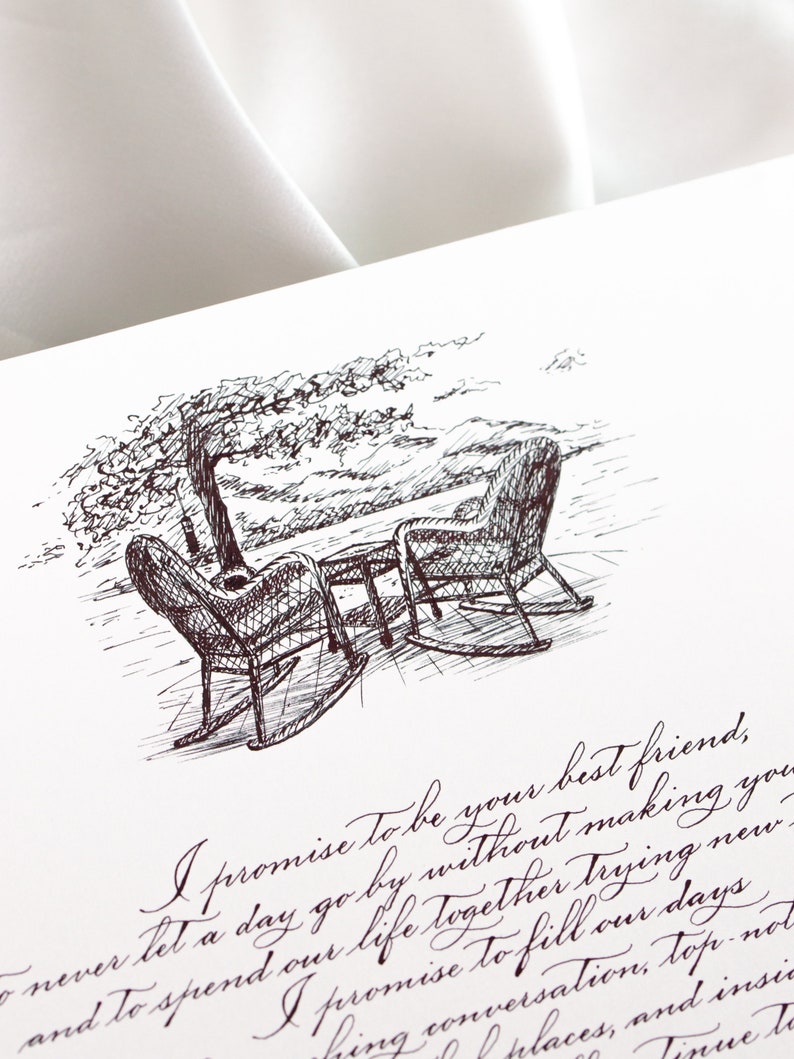 I promise to be your best friend,
to never let a day go by without making you
and to spend our life together trying new
I promise to fill our days
conversation, top-not
places, and insid